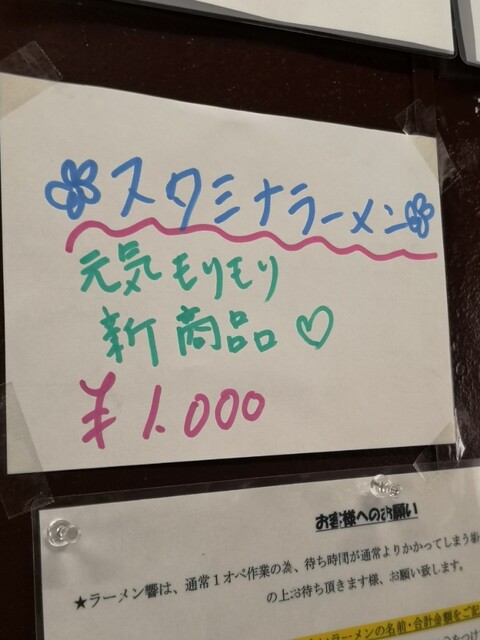 スタミナラーメン
元気もりもり
新商品♡
¥1.000
お客様へのお願い
★ラーメン響は、通常1オペ作業の為、待ち時間が通常よりかかってしまう
の上お待ち頂きます様、お願い致します。
ラーメンの名前・合計金額をご記